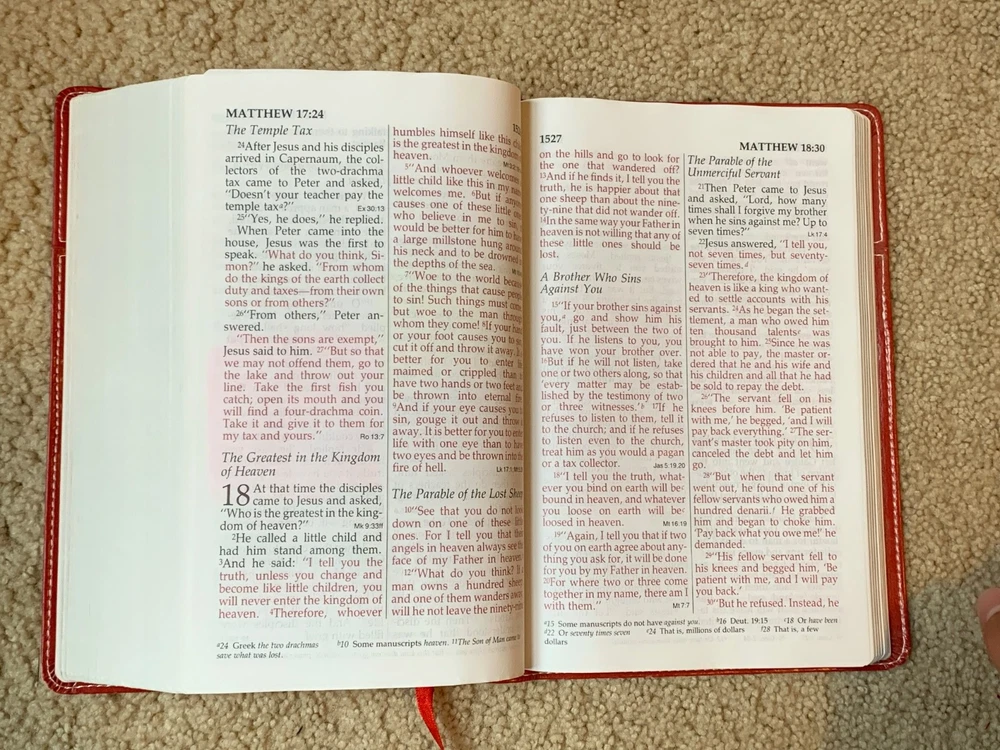 MATTHEW 17:24
The Temple Tax
24After Jesus and his disciples
arrived in Capernaum, the col-
lectors of the two-drachma
tax came to Peter and asked,
"Doesn't your teacher pay the
temple taxa?" Ex 30:13
25"Yes, he does," he replied.
When Peter came into the
house, Jesus was the first to
speak. "What do you think, Si-
mon?" he asked. "From whom
do the kings of the earth collect
duty and taxes—from their own
sons or from others?"
26"From others," Peter an-
swered.
"Then the sons are exempt,"
Jesus said to him. 27"But so that
we may not offend them, go to
the lake and throw out your
line. Take the first fish you
catch; open its mouth and you
will find a four-drachma coin.
Take it and give it to them for
my tax and yours." Ro 13:7
The Greatest in the Kingdom
of Heaven
18 At that time the disciples
came to Jesus and asked,
"Who is the greatest in the king-
dom of heaven?" Mk 9:33ff
2He called a little child and
had him stand among them.
3And he said: "I tell you the
truth, unless you change and
become like little children, you
will never enter the kingdom of
heaven. 4Therefore, whoever
humbles himself like this
is the greatest in the
heaven.
5"And whoever
little child like this in my
welcomes me. 6But if
causes one of these little
who believe in me to
would be better for him to
a large millstone hung
his neck and to be drowned
the depths of the sea.
7"Woe to the world
of the things that cause
to sin! Such things must
but woe to the man
whom they come! 8If your
or your foot causes you to
cut it off and throw it away.
better for you to enter
maimed or crippled than
have two hands or two feet and
be thrown into eternal
9And if your eye causes you
sin, gouge it out and throw
away. It is better for you to
life with one eye than to
two eyes and be thrown into the
fire of hell.
The Parable of the Lost Sheep
10"See that you do not look
down on one of these little
ones. For I tell you that their
angels in heaven always see the
face of my Father in heaven.
12"What do you think? If a
man owns a hundred sheep,
and one of them wanders away,
will he not leave the ninety-nine
a24 Greek the two drachmas b10 Some manuscripts heaven. 11The Son of Man came to
save what was lost.
1527
MATTHEW 18:30
on the hills and go to look for
the one that wandered off?
13And if he finds it, I tell you the
truth, he is happier about that
one sheep than about the nine-
ty-nine that did not wander off.
14In the same way your Father in
heaven is not willing that any of
these little ones should be
lost.
A Brother Who Sins
Against You
15"If your brother sins against
you,a go and show him his
fault, just between the two of
you. If he listens to you, you
have won your brother over.
16But if he will not listen, take
one or two others along, so that
'every matter may be estab-
lished by the testimony of two
or three witnesses.'b 17If he
refuses to listen to them, tell it
to the church; and if he refuses
to listen even to the church,
treat him as you would a pagan
or a tax collector. Jas 5:19,20
18"I tell you the truth, what-
ever you bind on earth will bec
bound in heaven, and whatever
you loose on earth will bec
loosed in heaven. Mt 16:19
19"Again, I tell you that if two
of you on earth agree about any-
thing you ask for, it will be done
for you by my Father in heaven.
20For where two or three come
together in my name, there am I
with them." Mt 7:7
The Parable of the
Unmerciful Servant
21Then Peter came to Jesus
and asked, "Lord, how many
times shall I forgive my brother
when he sins against me? Up to
seven times?" Lk 17:4
22Jesus answered, "I tell you,
not seven times, but seventy-
seven times.d
23"Therefore, the kingdom of
heaven is like a king who want-
ed to settle accounts with his
servants. 24As he began the set-
tlement, a man who owed him
ten thousand talentse was
brought to him. 25Since he was
not able to pay, the master or-
dered that he and his wife and
his children and all that he had
be sold to repay the debt.
26"The servant fell on his
knees before him. 'Be patient
with me,' he begged, 'and I will
pay back everything.' 27The ser-
vant's master took pity on him,
canceled the debt and let him
go.
28"But when that servant
went out, he found one of his
fellow servants who owed him a
hundred denarii.f He grabbed
him and began to choke him.
'Pay back what you owe me!' he
demanded.
29"His fellow servant fell to
his knees and begged him, 'Be
patient with me, and I will pay
you back.'
30"But he refused. Instead, he
a15 Some manuscripts do not have against you. b16 Deut. 19:15 c18 Or have been
d22 Or seventy times seven e24 That is, millions of dollars f28 That is, a few
dollars